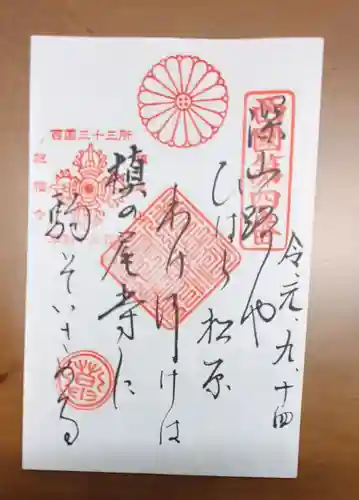 西国第四番
令元.九.十四
深山路や
ひはら松原
わけ行けは
槇の尾寺に
駒そいさめる
西国三十三所